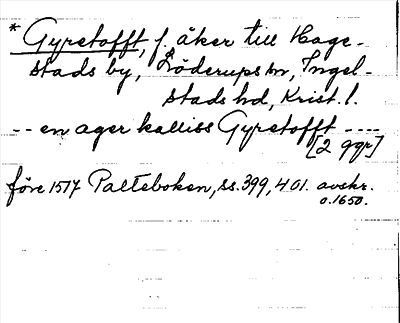 * Gyretofft, f. åker till Hage-
stads by, Löderups sn, Ingel-
stads hd, Krist. l.
-- en ager kalliss Gyretofft ----
[2 ggr]
före 1517 Palteboken, ss. 399, 401. avskr.
o. 1650.